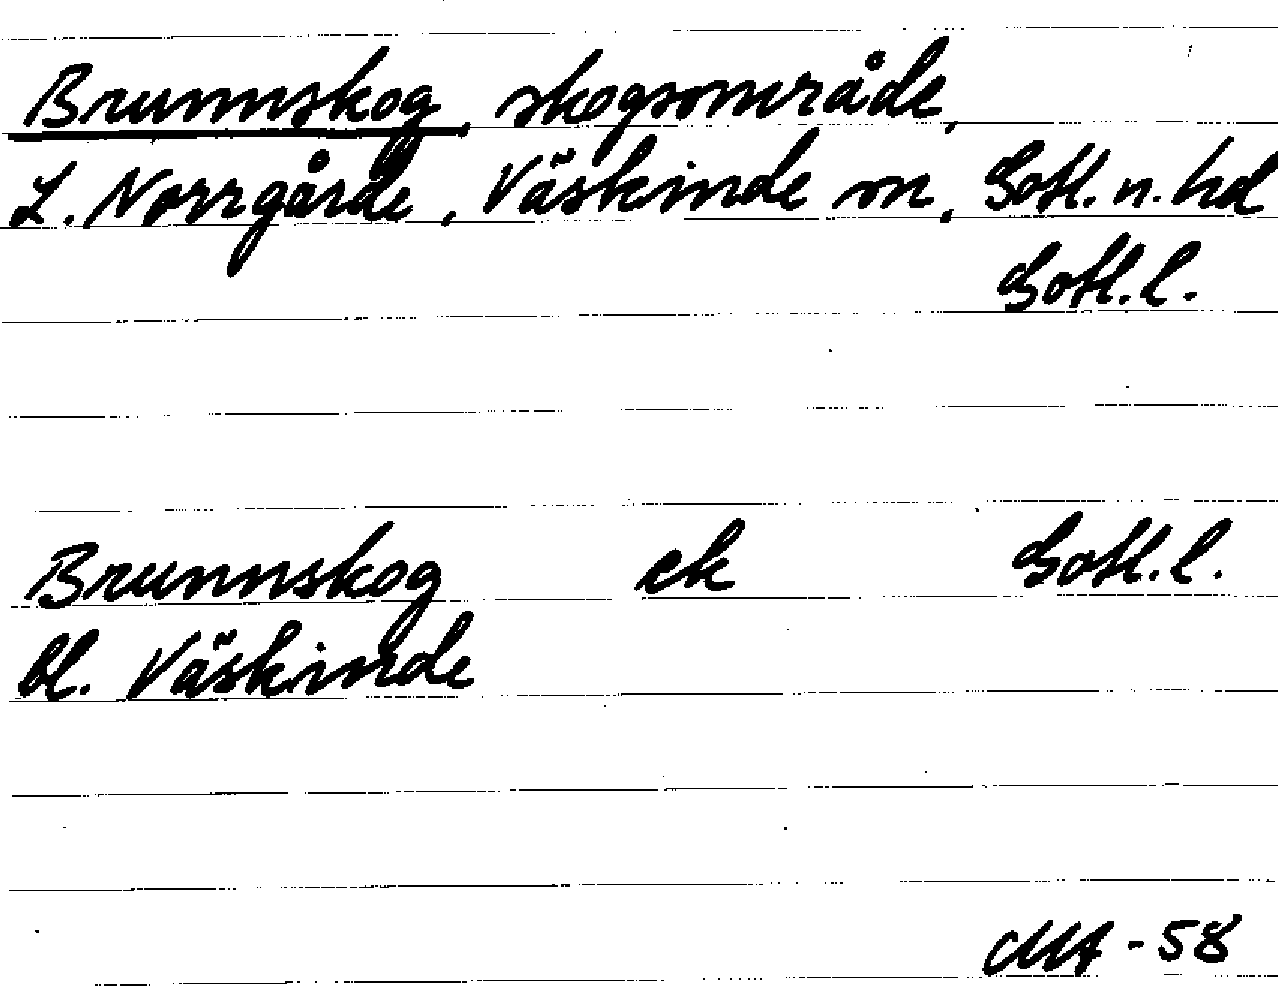 Brunnskog, skogsområde,
L. Norrgårde, Väskinde sn, Gotl. n. hd
Gotl. l.
Brunnskog ek Gotl. l.
bl. Väskinde
-58